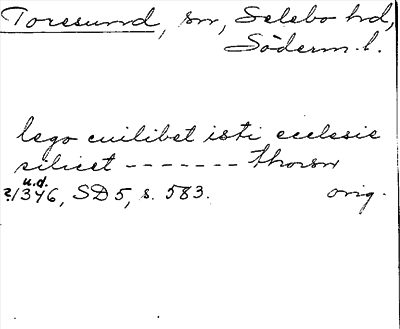 Toresund, sn, Selebo hd,
Söderm. l.
lego cuilibet isti ecclesie
silicet ------- thorsn
u.d.
?1346, SD 5, s. 583. orig.